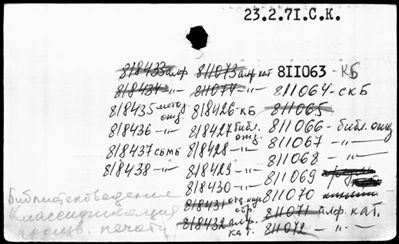 23.2.71.С.К.
818433 алф 811073 алф кат 811063 - КБ
818434 -"- 811074 -"- 811064 - СКБ
818435 метод. отд. 818426 - КБ 811065
818436 -"- 818427 библ. отд. 811066 - библ. отд
818437 СБМБ 818428 -"- 811067 -"-
818438 -"- 818429 -"- 811068 -"-
818430 -"- 811069
818431 отд. обр. 811070
818432 алф. кат. 811071 алф. кат.
811072 -"-
Библиотековедение
Классификация
произв. печати